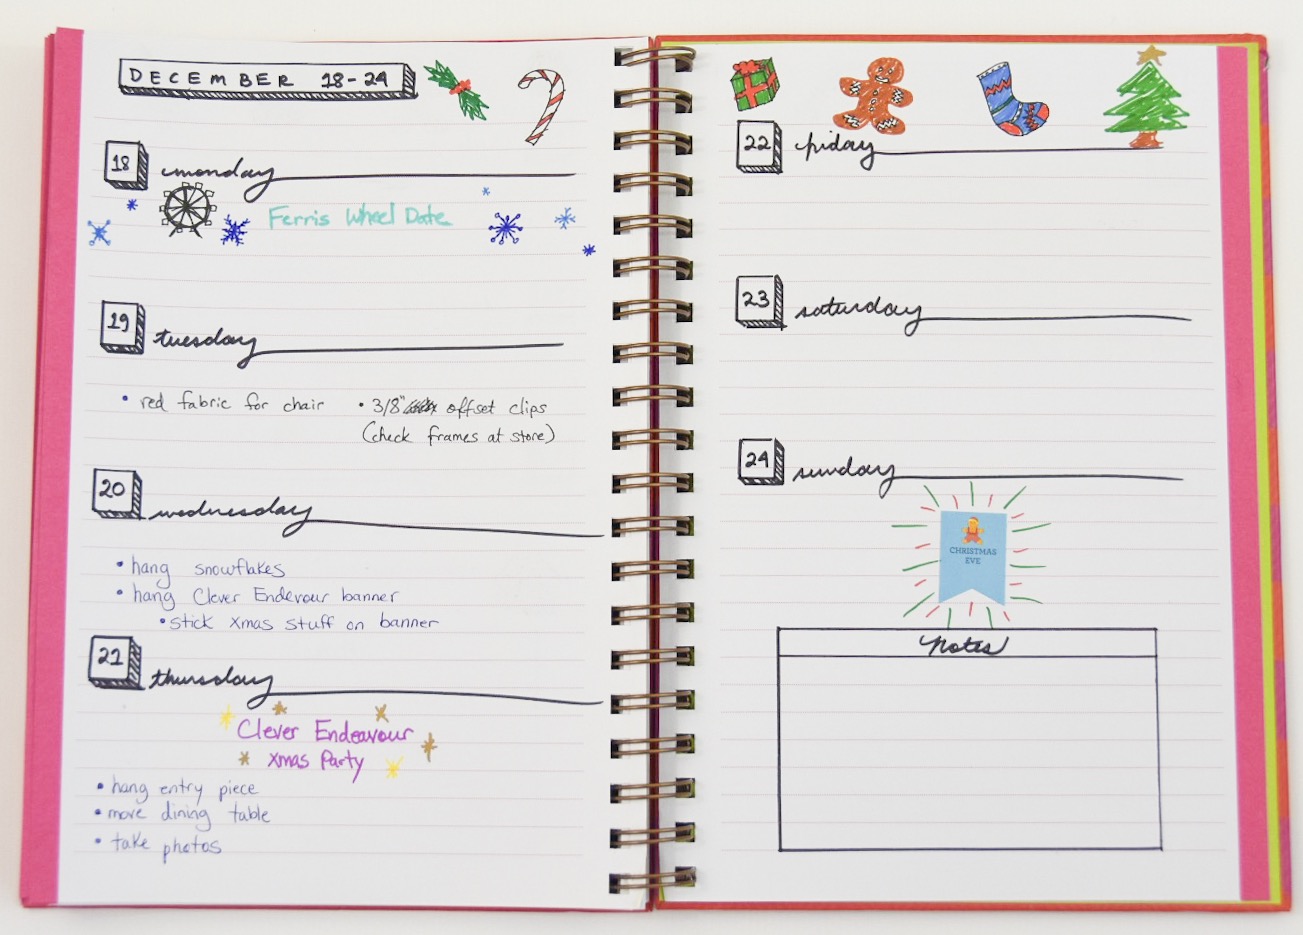 DECEMBER 18-24
18 monday
Ferris Wheel Date
19 tuesday
• red fabric for chair
• 3/8" offset clips
(check frames at store)
20 wednesday
• hang snowflakes
• hang Clever Endevour banner
• stick Xmas stuff on banner
21 thursday
Clever Endeavour
Xmas Party
• hang entry piece
• move dining table
• take photos
22 friday
23 saturday
24 sunday
CHRISTMAS
EVE
notes